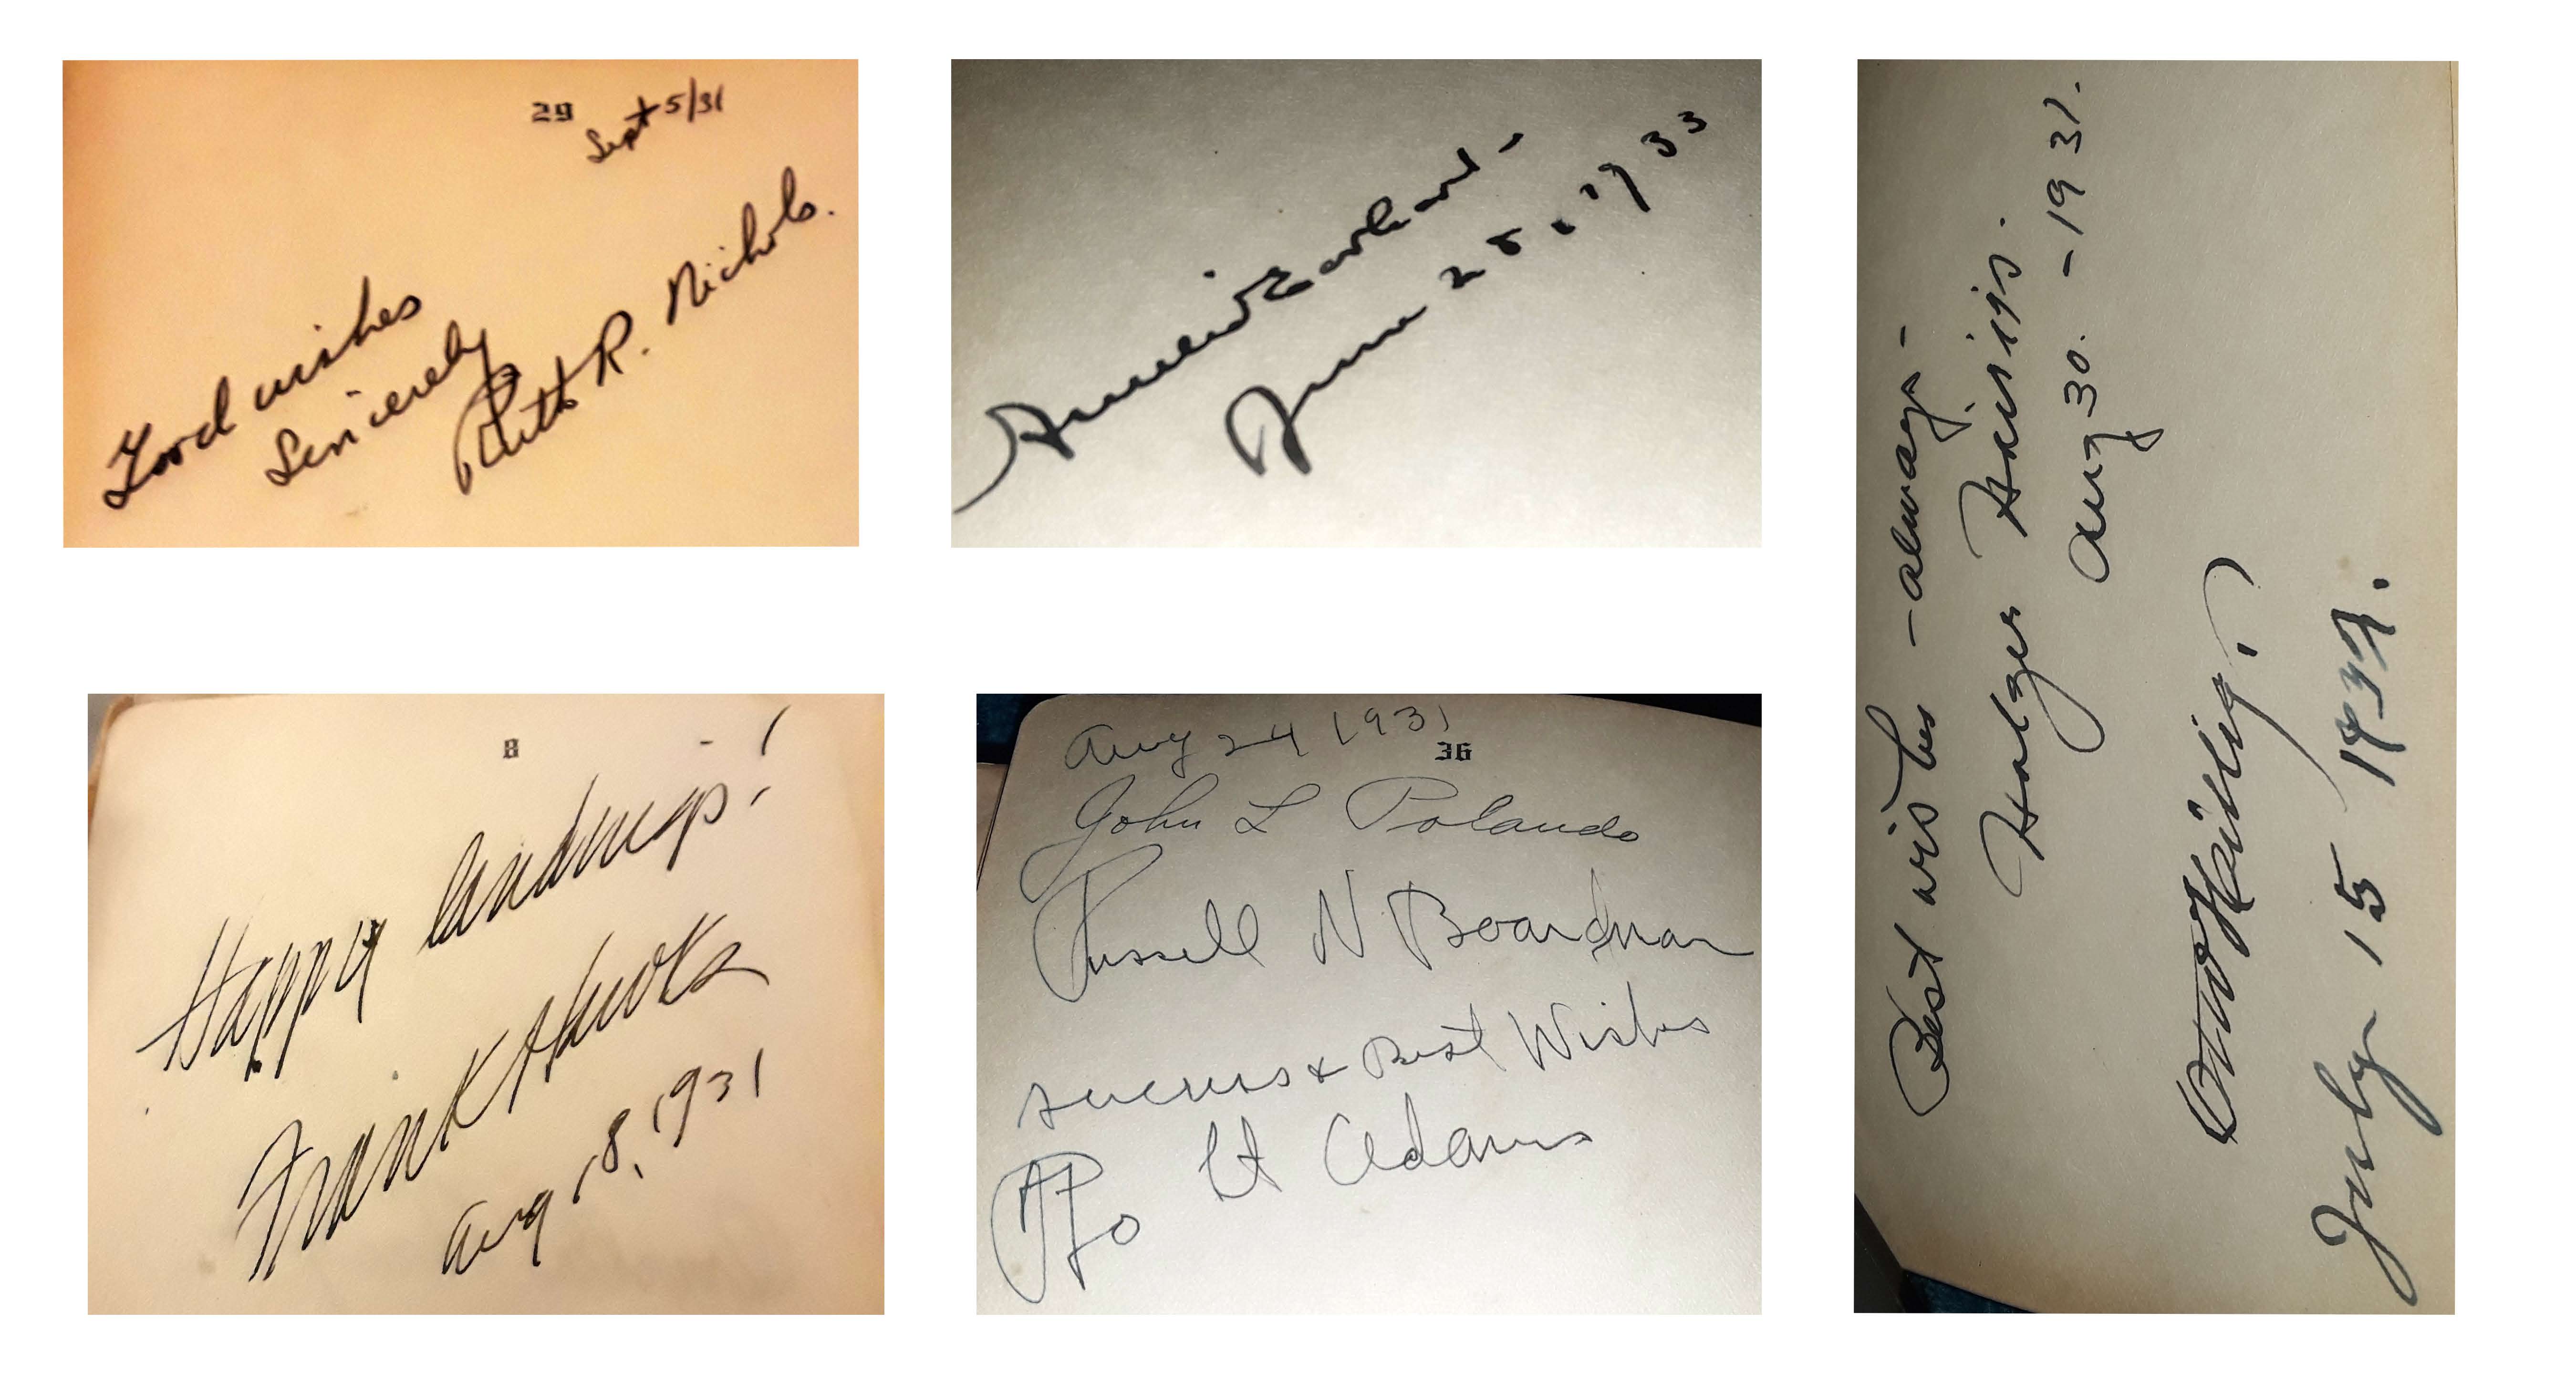 29
Sept 5/31
Good wishes
Sincerely
Ruth R. Nichols.
Amelia Earhart -
June 28, 1933
8
Happy landings!
Frank Hawks
Aug 18, 1931
Aug 24 1931
36
John L Polando
Russell N Boardman
success & Best Wishes
Lt Adams
Best wishes - always -
Holger Hoiriis.
Aug 30. - 1931.
July 15 1932.